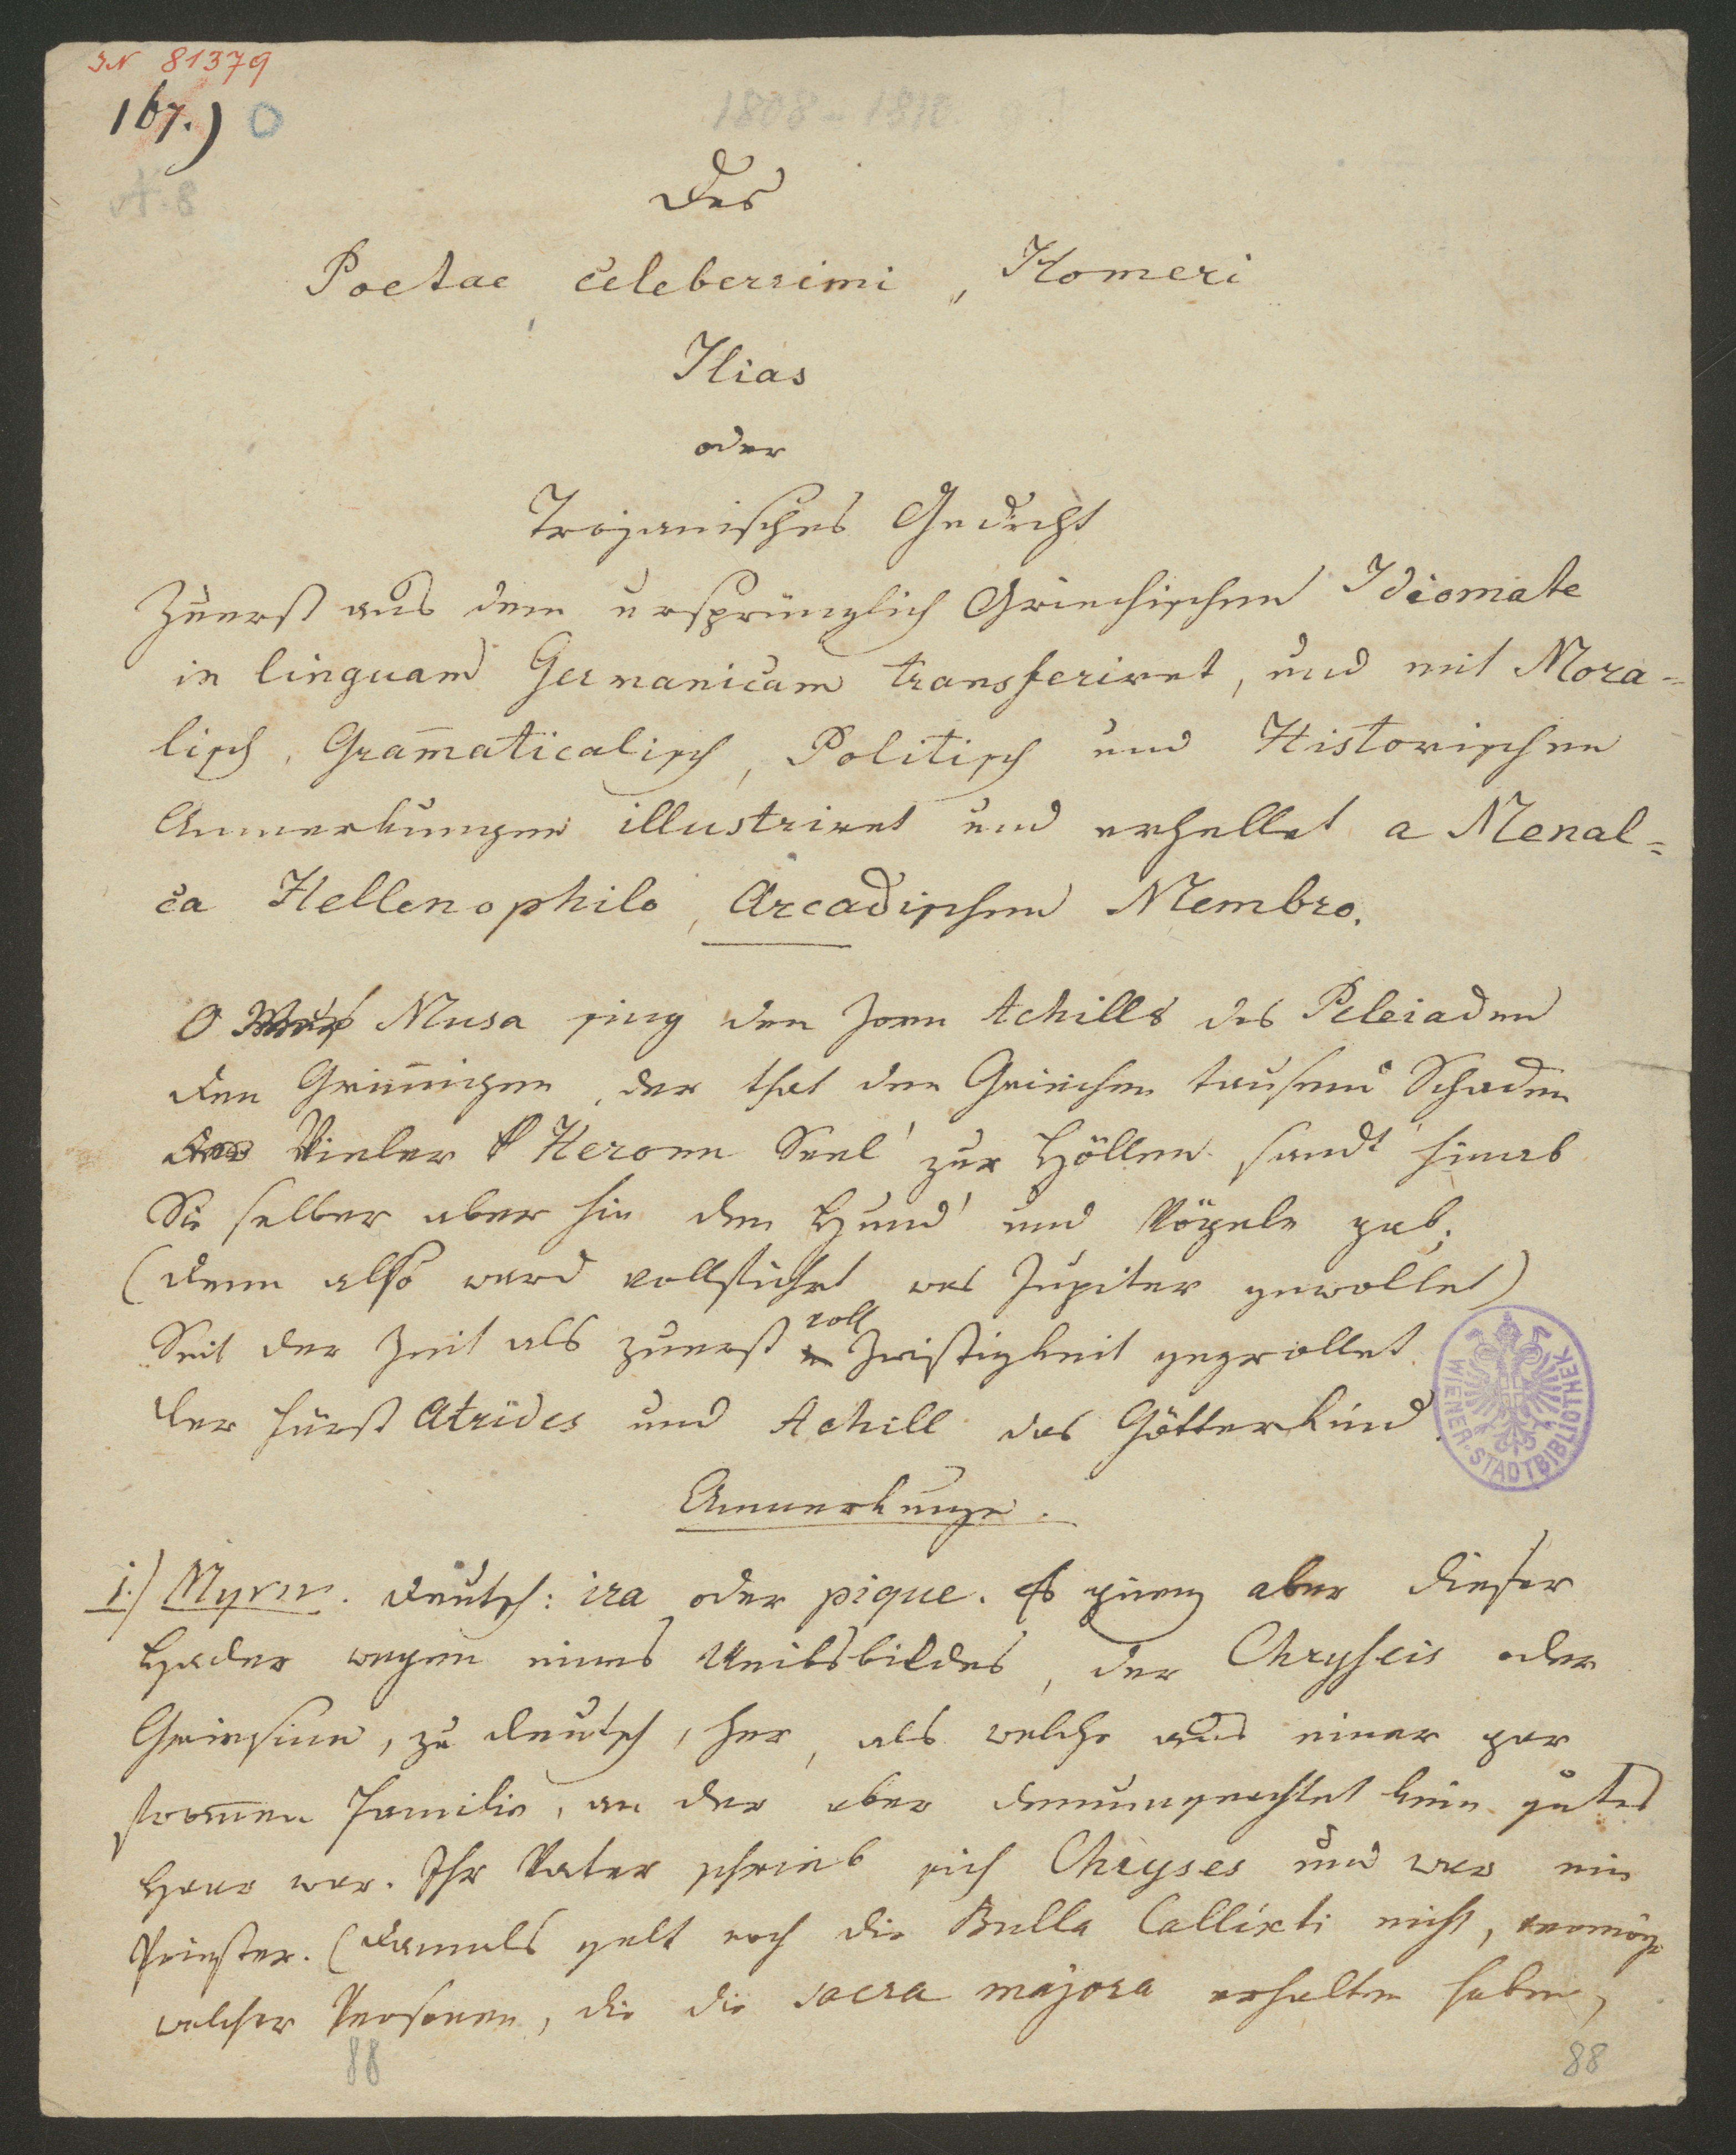 IN 81379
167.) O
1808-1810
A. 8
Des
Poetae celeberrimi, Homeri
Ilias
oder
Trojanisches Gedicht
Zuerst aus dem ursprünglich Griechischen Idiomate
in linguam Germanicam transferiret, und mit Mora=
lisch, Gram̄aticalisch, Politisch und Historischen
Anmerkungen illustriret und erhellet a Menal=
ca Hellenophilo, Arcadischen Membro.
O Musa sing den Zorn Achills des Peleiaden
den Grim̄igen, der that den Griechen tausend Schaden
Vieler Heroen Seel' zur Höllen sandt' hinab
Sie selber aber hin den Hund' und Vögeln gab;
(denn also ward vollführt was Jupiter gewollet)
voll
Seit der Zeit als zuerst Zwistigkeit gegrollet
der Fürst Atrides und Achill das Götterkind.
WIENER STADTBIBLIOTHEK
Anmerkunge.
1.) Μηνιν. deutsch: ira oder pique. Es gieng aber dieser
Hader wegen eines Weibsbildes, der Chryseis oder
zu deutsch, her, als welche aus einer gar
from̄en Familie, an der aber demungeachtet kein gutes
Haar war. Ihr Vater schrieb sich Chryses und war ein
Priester. (Damals galt noch die Bulla Callixti nicht, vermög
welcher Personen, die die sacra majora erhalten haben,
88 88